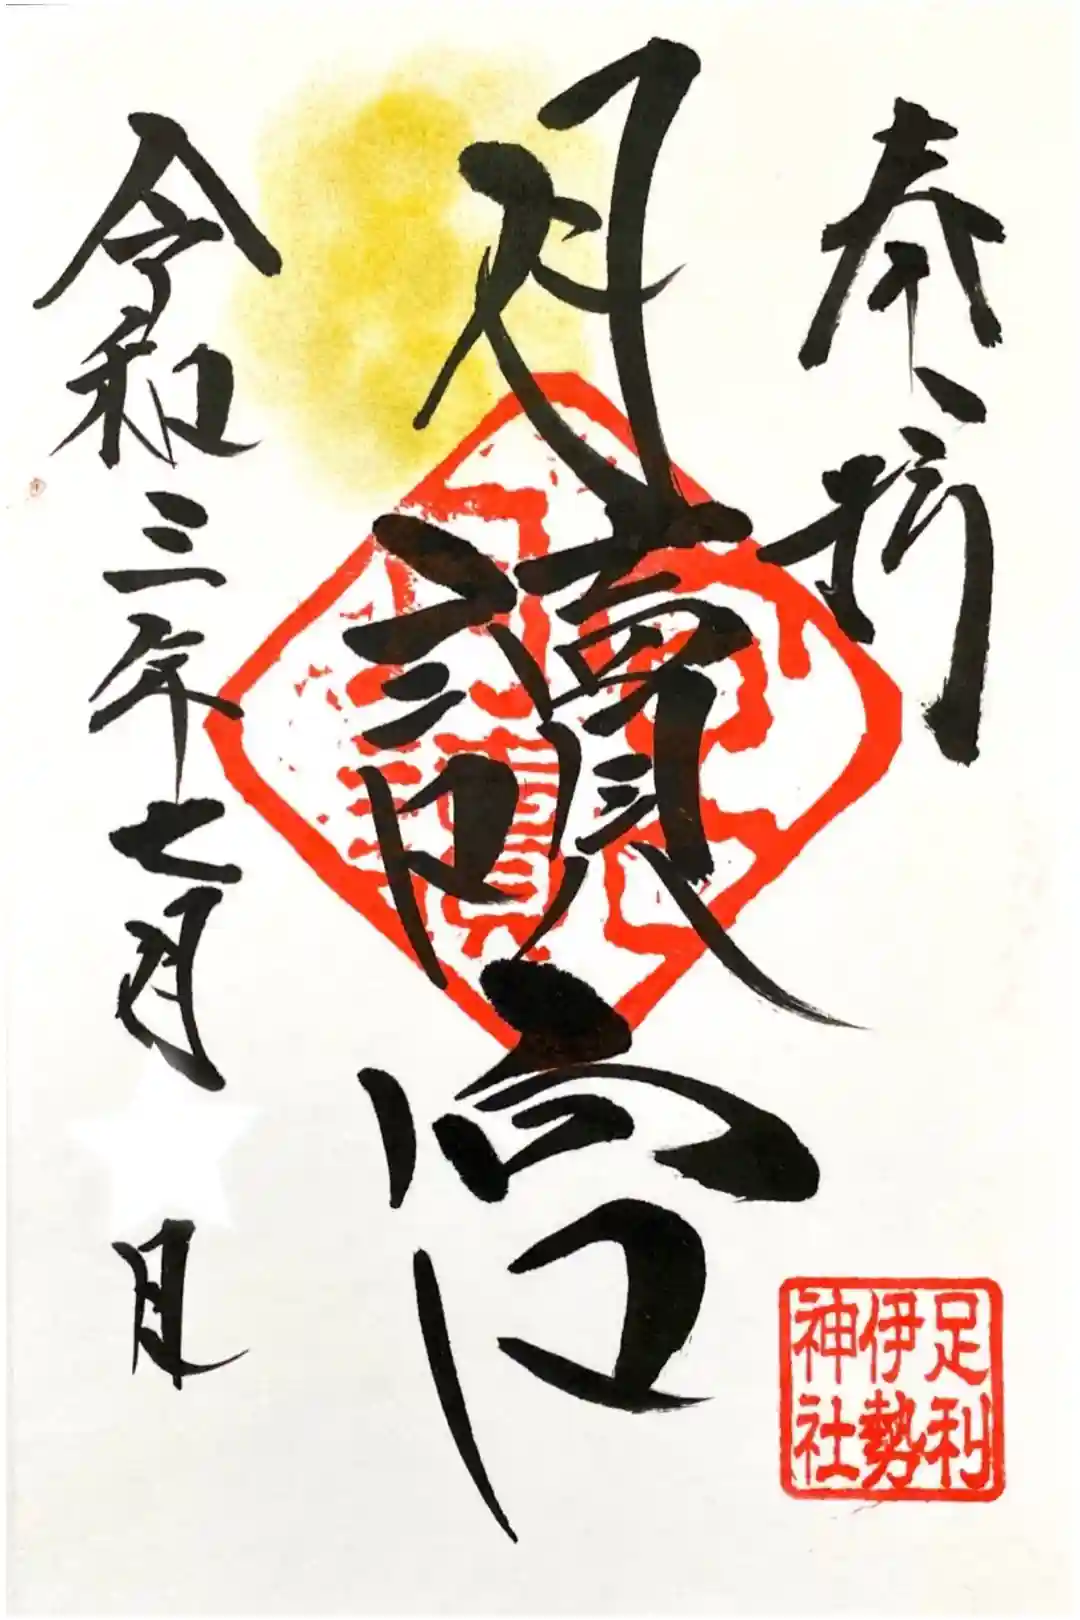 奉拝
月讀宮
足利
伊勢
神社
令和三年七月 日